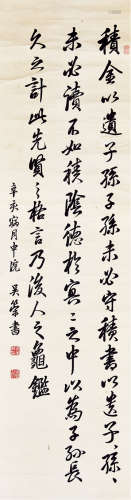 積金以遺子孫子孫未必守積書以遺子孫々々
未必讀不如積陰德於冥々之中以為子孫長
久之計此先賢之格言乃後人之龜鑑
辛未病月中浣 吳榮書